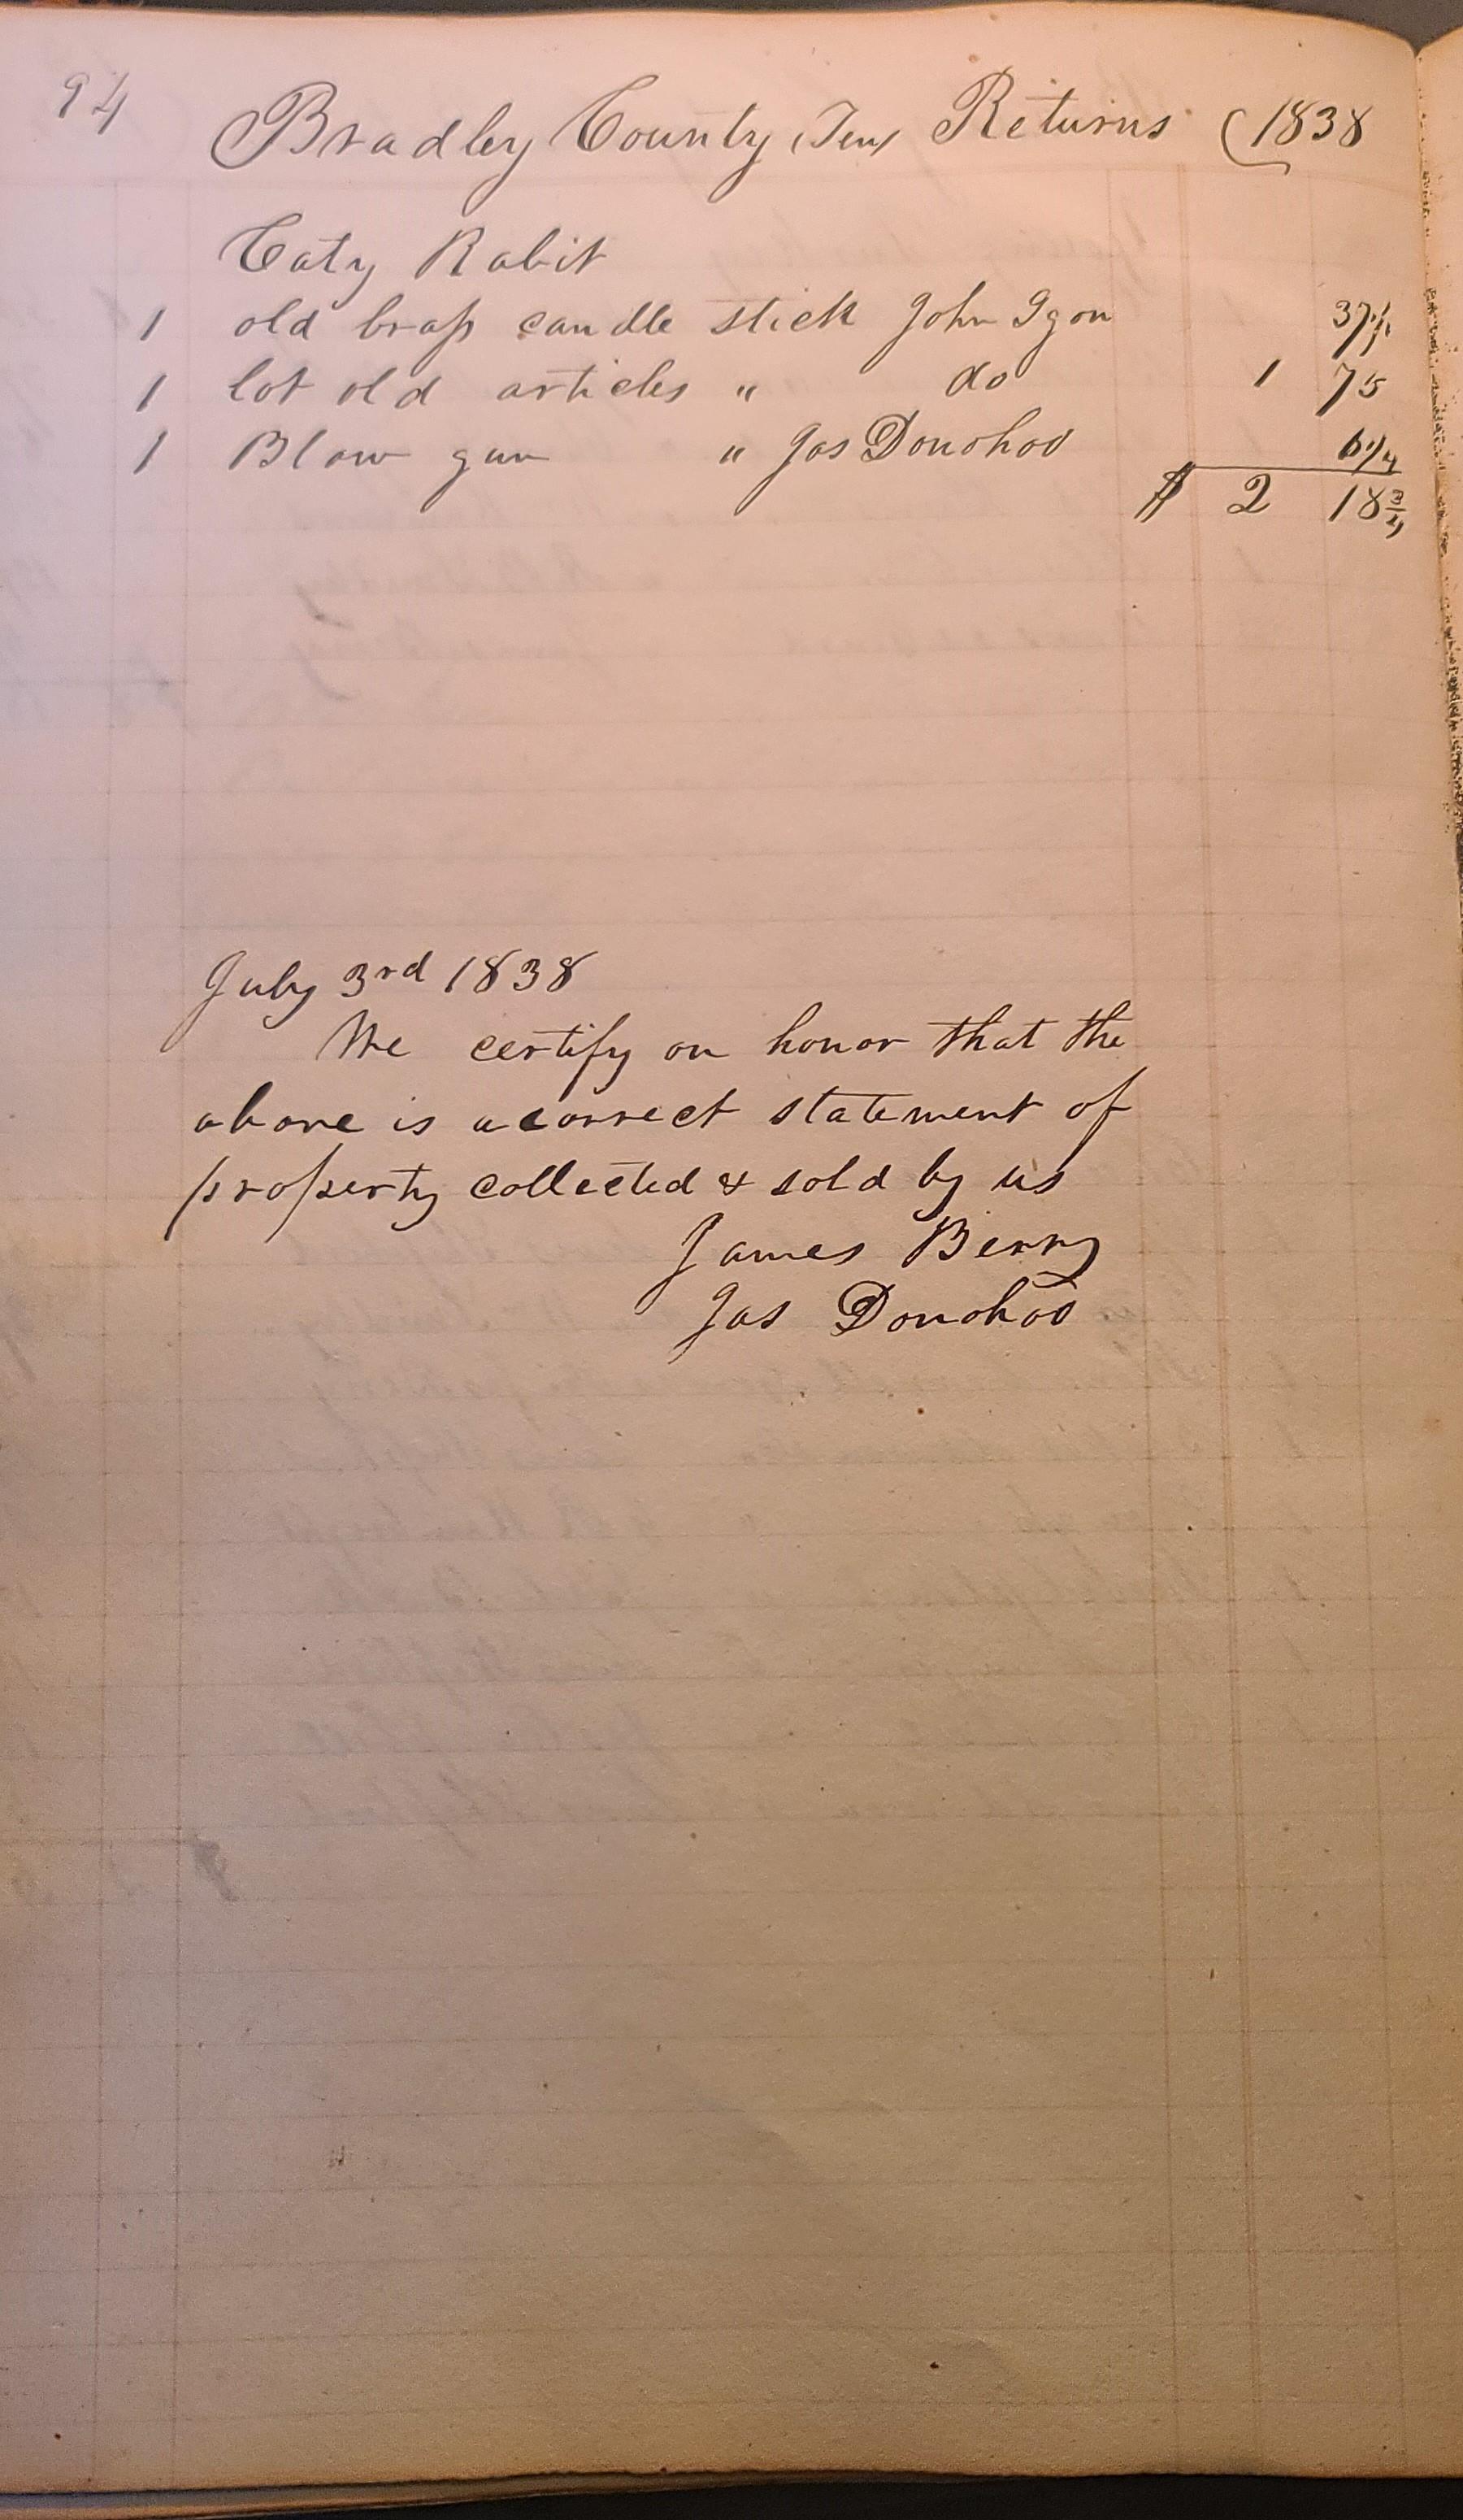 94 Bradley County (Ten) Returns (1838
Caty Rabit
1 old brass candle stick John Igon 37 1/2
1 lot old articles " do 1 75
1 Blow gun " Jas Donohoo 6 1/4
$ 2 18 3/4
July 3rd 1838
We certify on honor that the
above is a correct statement of
property collected & sold by us
James Berry
Jas Donohoo